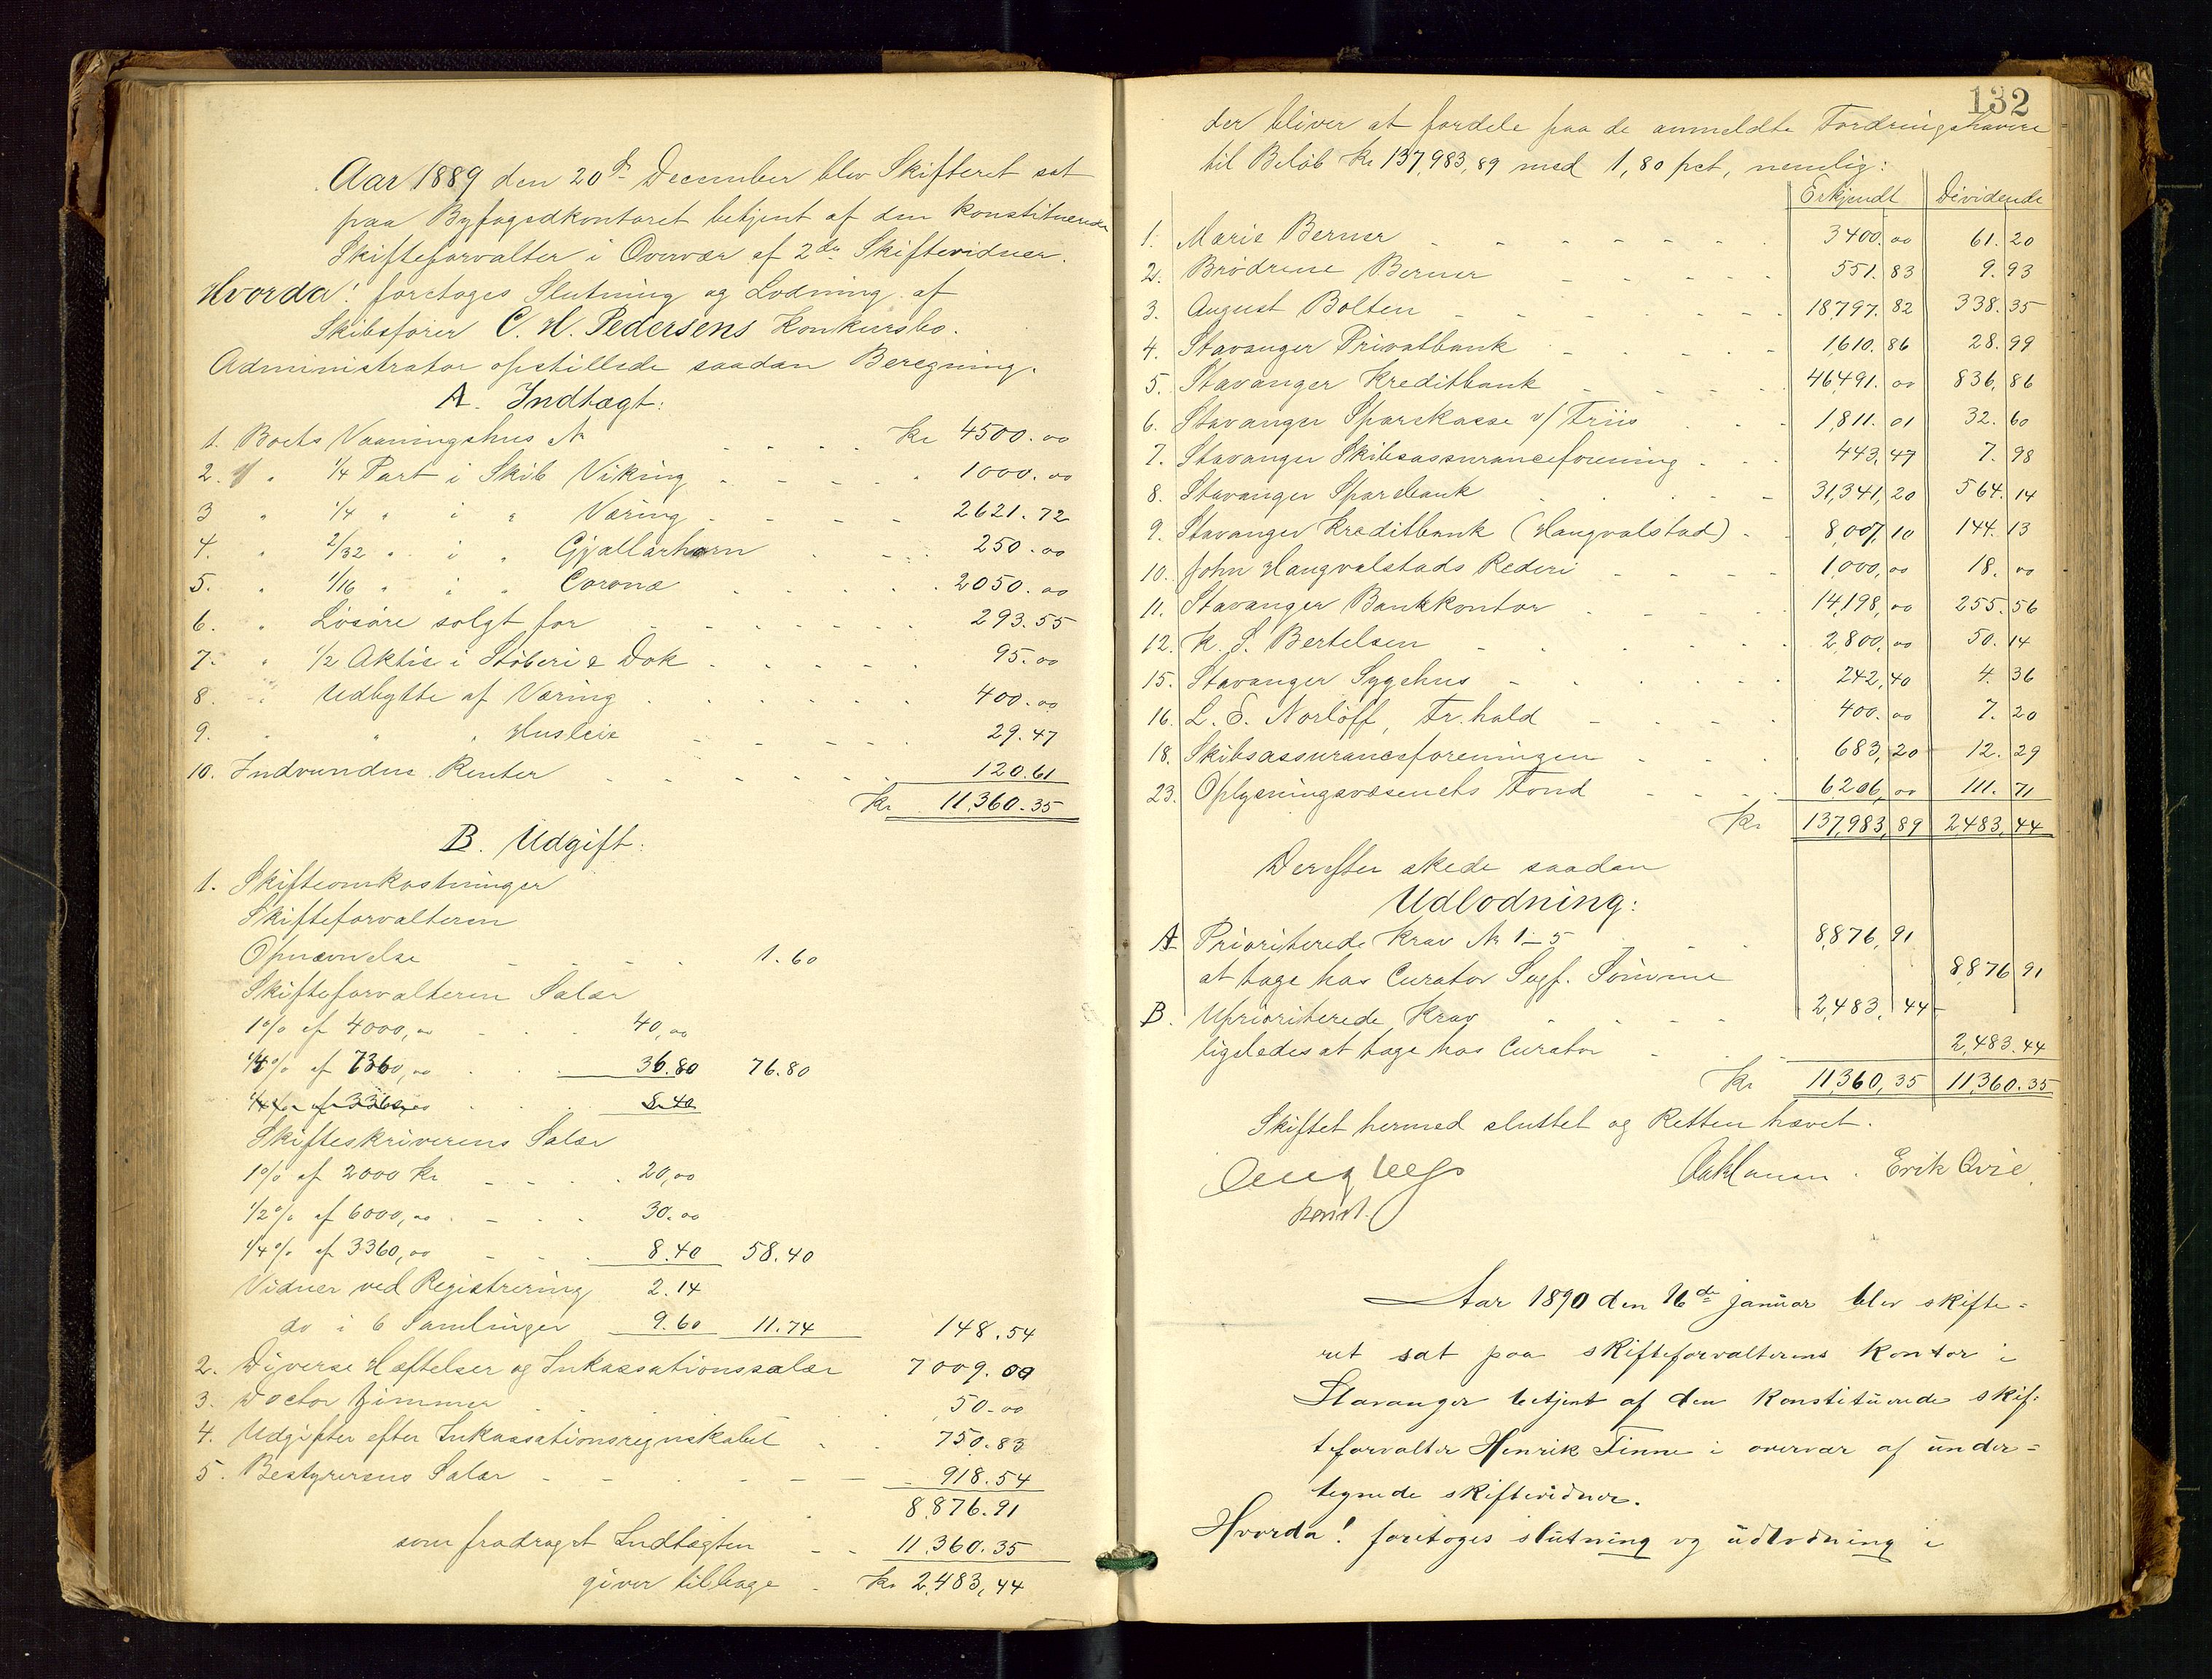 Aar 1889 den 20de December blev Skifteret sat
paa Byfogedkontoret betjent af den konstituerede
Skifteforvalter i Overvær af 2de Skiftevidner.
Hvorda! foretoges Slutning og Lodning af
Skibsfører C. H. Pedersens Konkursbo.
Administrator opstillede saadan Beregning.
A. Indtægt:
1. Boets Vaaningshus № Kr 4500.00
2. " 1/4 Part i Skib Viking 1000.00
3 " 1/4 " i " Væring 2621.72
4. " 2/32 " i " Gjallarhorn 250.00
5. " 1/16 " i " Corona 2050.00
6. " Løsøre solgt for 293.55
7. " 1/2 Aktie i Støberi & Dok 95.00
8. " Udbytte af Væring 400.00
9. " " " Husleie 29.47
10. Indvundne Renter 120.61
Kr. 11,360.35
B. Udgift:
1. Skifteomkostninger
Skifteforvalteren
Opnævnelse 1.60
Skifteforvalteren Salær
1% af 4000,00 40,00
1/2% af 7360,00 36.80 76.80
1/4% af 3360,00 8.40
Skifteskriverens Salær
1% af 2000 Kr 20,00
1/2% af 6000,00 30.00
1/4% af 3360,00 8.40 58.40
Vidner ved Registrering 2.14
do i 6 Samlinger 9.60 11.74 148.54
2. Diverse Hæftelser og Inkassationssalær 7009.00
3. Doctor Zimmer 50.00
4. Udgifter efter Inkassationsregnskabet 750.83
5. Bestyrerens Salær 918.54
8.876.91
som fradraget Indtægten 11.360.35
giver tilbage Kr 2,483,44
132
der bliver at fordele paa de anmeldte Fordringshavere
til Beløb Kr 137,983,89 med 1,80 pct, nemlig:
Erkjendt Dividende
1. Marie Berner 3400.00 61.20
2. Brødrene Berner 551.83 9.93
3. August Bolten 18797.82 338.35
4. Stavanger Privatbank 1,610.86 28.99
5. Stavanger Kreditbank 46491.00 836,86
6. Stavanger Sparekasse v/ Friis 1,811.01 32.60
7. Stavanger Skibsassuranceforening 443,47 7.98
8. Stavanger Sparebank 31,341,20 564.14
9. Stavanger Kreditbank (Haugvalstad) 8,007,10 144.13
10. John Haugvalstads Rederi 1,000,00 18.00
11. Stavanger Bankkontor 14,198,00 255.56
12. K. S. Bertelsen 2,800,00 50.14
15. Stavanger Sygehus 242,40 4.36
16. L. S. Norløff, Fr.hald 400.00 7.20
18. Skibsassuranceforeningen 683,20 12.29
23. Oplysningsvæsenets Fond 6206,00 111.71
Kr 137,983,89 2483,44
Derefter skede saadan
Udlodning:
A Prioriterede Krav № 1-5 8,876,91
at tage hos Curator Sigf. Sömme 8,876 91
B. Uprioriterede Krav 2,483,44
ligeledes at tage hos Curator 2,483.44
Kr 11360,35 11,360.35
Skiftet hermed sluttet og Retten hævet.
konst. Erik Qvie
Aar 1890 den 16de januar blev skifte=
ret sat paa skifteforvalterens kontor i
Stavanger betjent af den konstituerede skif=
teforvalter Henrik Finne i overvær af under=
tegnede skiftevidner.
Hvorda! foretoges slutning og udlodning i